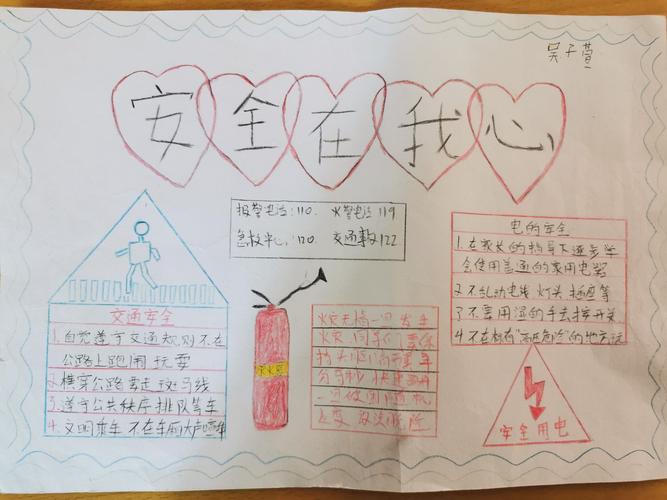 吴子萱
安全在我心
报警电话:110. 火警电话119
急救中心:120 交通事故122
交通安全
1.自觉遵守交通规则不在
公路上跑闹玩耍
2.横穿公路要走斑马线
3.遵守公共秩序排队等车
4.文明乘车 不在车厢大声喧哗
灭火器
火灾
一旦发生
电的安全
1.在家长的指导下逐步学
会使用普通的家用电器
2.不乱动电线 灯头 插座等
3.不要用湿的手去按开关
4.不在标有"高压危险"的地方玩
安全用电